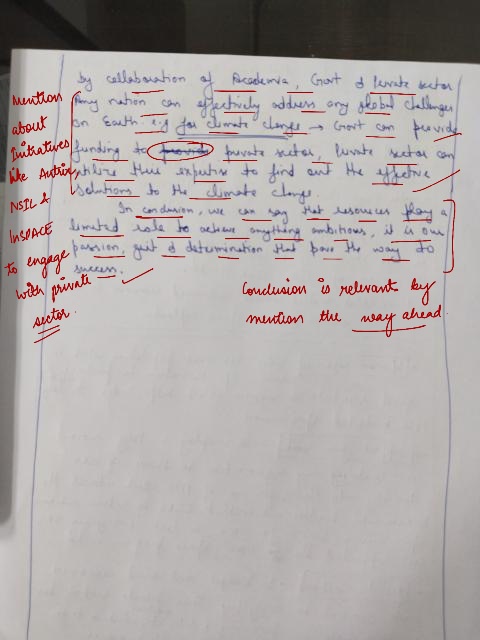 By collaboration of Academia, Govt & Private sector
Any nation can effectively address any global challenges
on Earth. e.g for climate change → Govt can provide
funding to provide private sector, Private sector can
utilize their expertise to find out the effective
solutions to the climate change.
In conclusion, we can say that resources play a
limited role to achieve anything ambitious, it is our
passion, grit & determination that pave the way to
success.
Mention
about
Initiatives
like Antrix,
NSIL &
INSPACE
to engage
with private
sector.
Conclusion is relevant by
mention the way ahead.